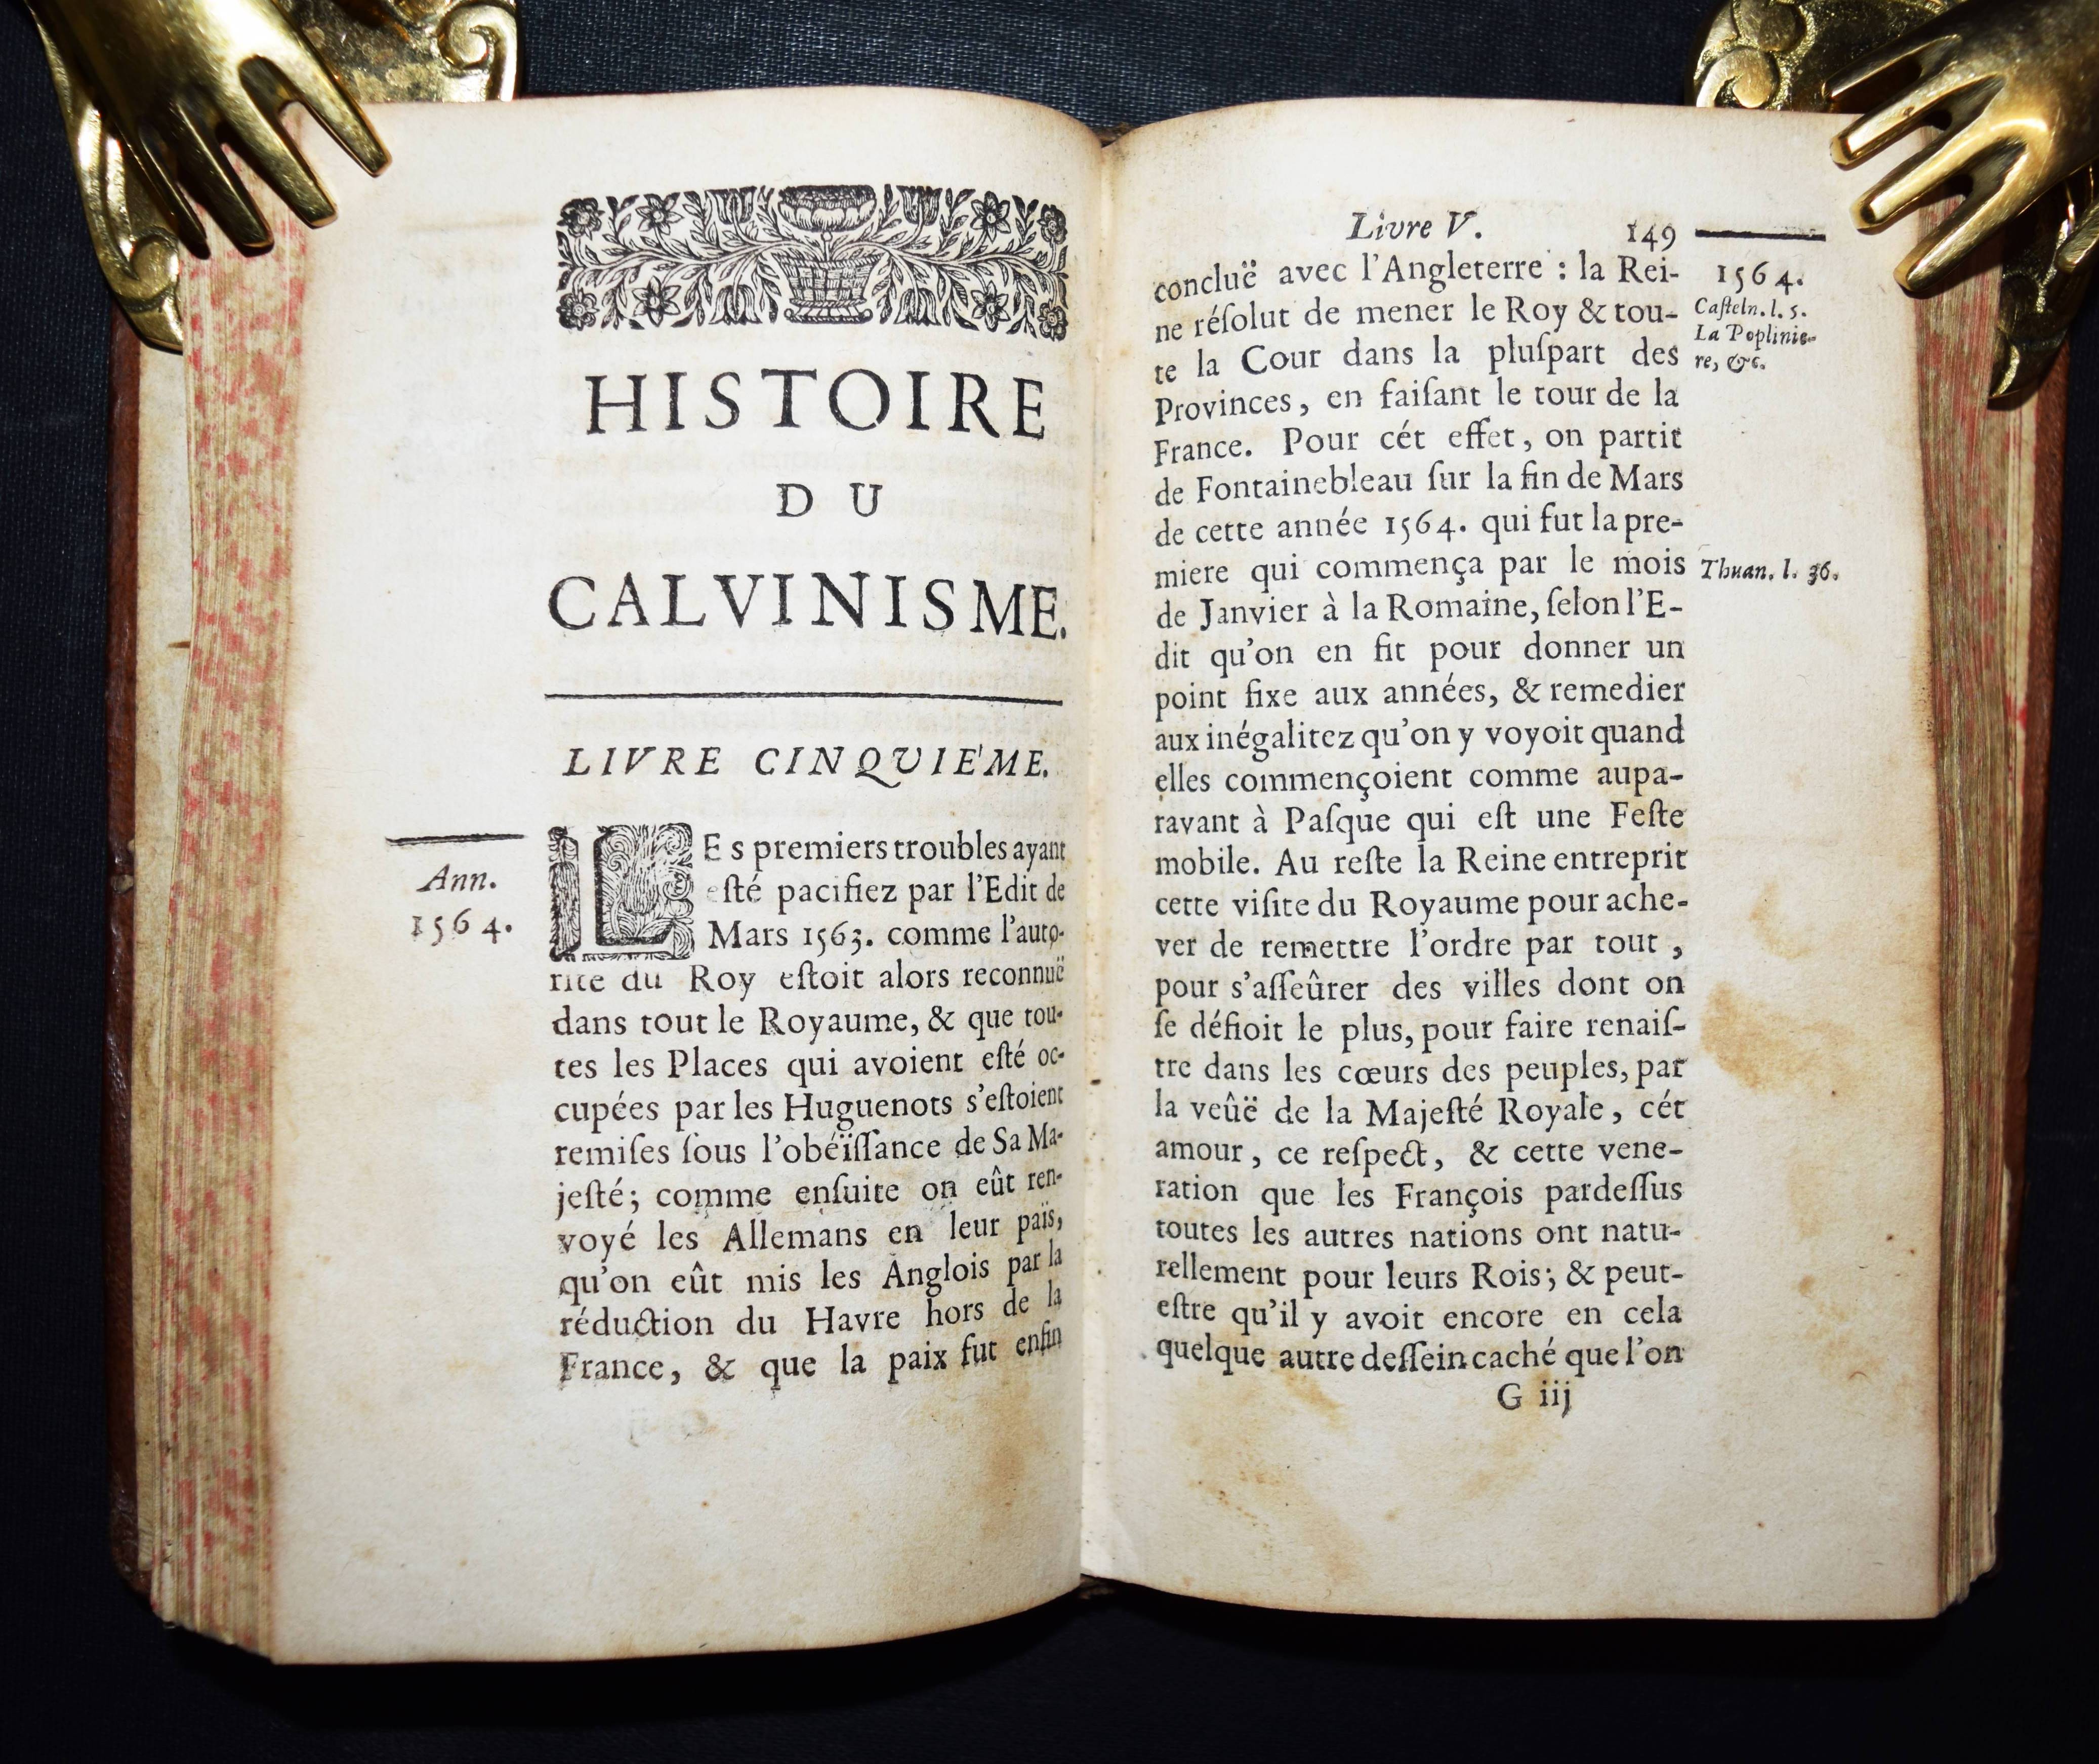 HISTOIRE
DU
CALVINISME.
LIVRE CINQUIE'ME.
Ann.
1564.
LEs premiers troubles ayant
eſté pacifiez par l'Edit de
Mars 1563. comme l'auto-
rité du Roy eſtoit alors reconnuë
dans tout le Royaume, & que tou-
tes les Places qui avoient eſté oc-
cupées par les Huguenots s'eſtoient
remiſes ſous l'obéïſſance de Sa Ma-
jeſté; comme enſuite on eût ren-
voyé les Allemans en leur païs,
qu'on eût mis les Anglois par la
réduction du Havre hors de la
France, & que la paix fut enfin
Livre V. 149
concluë avec l'Angleterre : la Rei-
ne réſolut de mener le Roy & tou-
te la Cour dans la pluſpart des
Provinces, en faiſant le tour de la
France. Pour cét effet, on partit
de Fontainebleau ſur la fin de Mars
de cette année 1564. qui fut la pre-
miere qui commença par le mois
de Janvier à la Romaine, ſelon l'E-
dit qu'on en fit pour donner un
point fixe aux années, & remedier
aux inégalitez qu'on y voyoit quand
elles commençoient comme aupa-
ravant à Paſque qui eſt une Feſte
mobile. Au reſte la Reine entreprit
cette viſite du Royaume pour ache-
ver de remettre l'ordre par tout ,
pour s'aſſeûrer des villes dont on
ſe défioit le plus, pour faire renaiſ-
tre dans les cœurs des peuples, par
la veûë de la Majeſté Royale, cét
amour, ce reſpect, & cette vene-
ration que les François pardeſſus
toutes les autres nations ont natu-
rellement pour leurs Rois; & peut-
eſtre qu'il y avoit encore en cela
quelque autre deſſein caché que l'on
G iij
1564.
Caſteln. l. 5.
La Poplinie-
re, &c.
Thuan. l. 36.